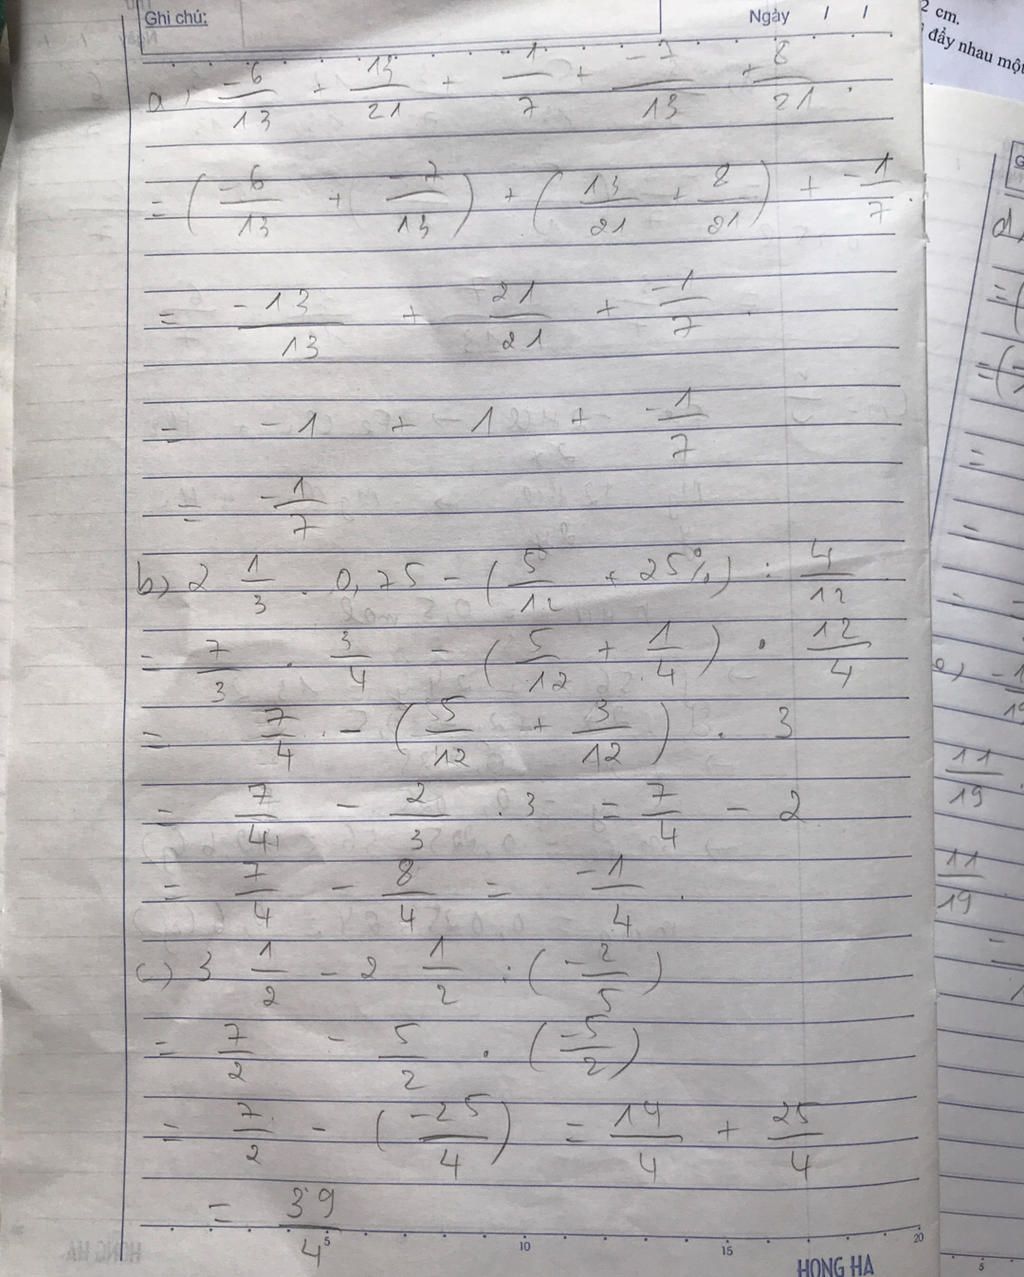 Ghi chú:
Ngày / /
a, -6/13 + 13/21 + -1/7 + -7/13 + 8/21.
= (-6/13 + -7/13) + (13/21 + 8/21) + -1/7.
= -13/13 + 21/21 + -1/7
= -1 + -1 + -1/7
= -1/7
b) 2 1/3 . 0,75 - (5/12 + 25%) : 4/12
= 7/3 . 3/4 - (5/12 + 1/4) . 12/4
= 7/4 - (5/12 + 3/12) . 3
= 7/4 - 2/3 . 3 = 7/4 - 2
= 7/4 - 8/4 = -1/4.
c) 3 1/2 - 2 1/2 : (-2/5)
= 7/2 - 5/2 . (-5/2)
= 7/2 - (-25/4) = 14/4 + 25/4
= 39/4
5 10 15 20
HONG HA
2 cm.
đẩy nhau một
d,
=
=
=
=
e) -1
11/19
11/19
5